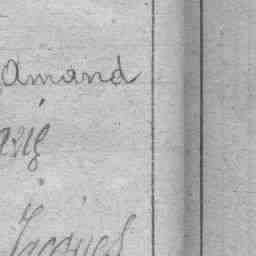 Amand
Jacques